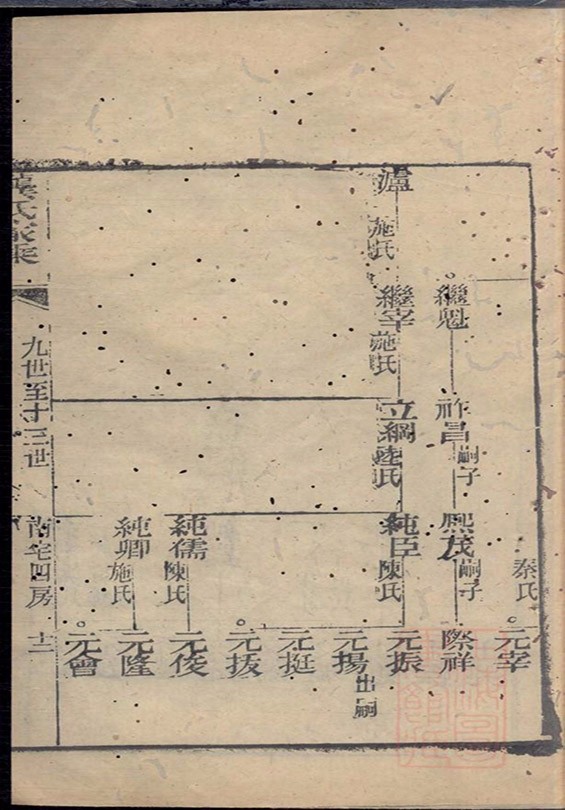 秦氏
元宰
繼魁
祚昌
嗣子
熈茂
嗣子
際祥
瀘
施氏
繼宰
施氏
立綱
陸氏
純臣
陳氏
元振
元揚
出嗣
元挺
元拔
純儒
陳氏
元俊
純卿
施氏
元隆
元會
氏家乗
九世至十三世
南宅四房
十二